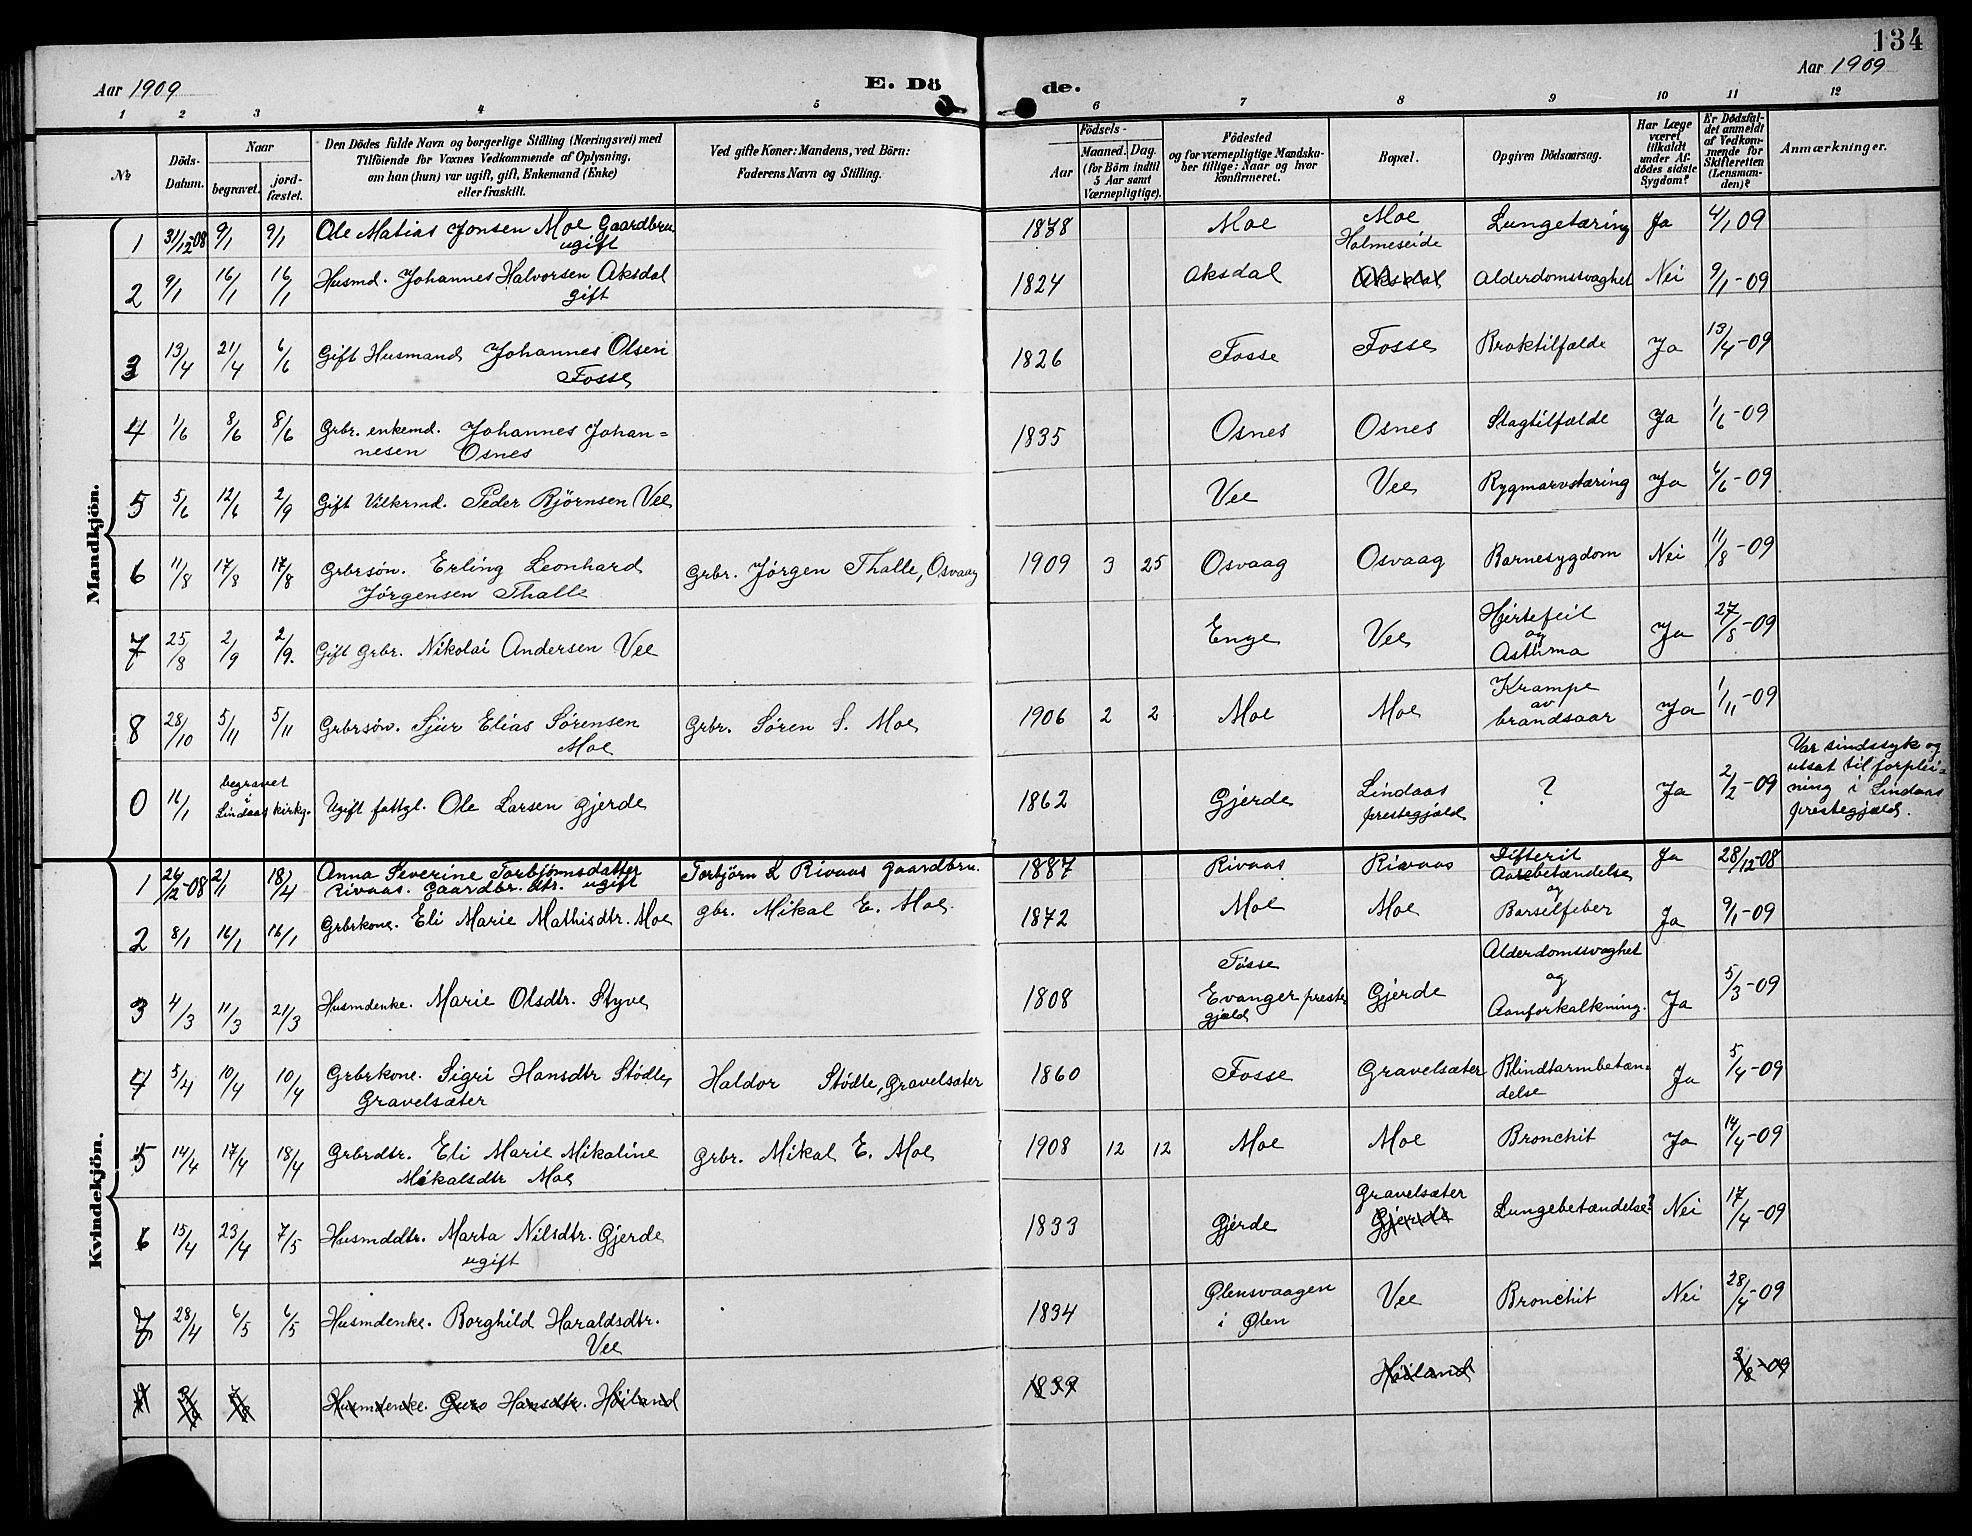 134
Aar 1909 E. Dö de. Aar 1909
1 2 3 4 5 6 7 8 9 10 11 12
№
Döds-Datum.
Naar
begravet. jord-fæstet.
Den Dödes fulde Navn og borgerlige Stilling (Næringsvei) med
Tilföiende for Voxnes Vedkommende af Oplysning,
om han (hun) var ugift, gift, Enkemand (Enke)
eller fraskilt.
Ved gifte Koner: Mandens, ved Börn:
Faderens Navn og Stilling.
Födsels-
Aar Maaned. Dag.
(for Börn indtil
5 Aar samt
Værnepligtige).
Födested
og for værnepligtige Mandska-
ber tillige: Naar og hvor
konfirmeret.
Bopæl.
Opgiven Dödsaarsag.
Har Læge
været
tilkaldt
under Af-
dödes sidste
Sygdom?
Er Dödsfal-
det anmeldt
af Vedkom-
mende for
Skifteretten
(Lensman-
den)?
Anmærkninger.
Mandkjön.
1 31/12-08 9/1 9/1 Ole Matias Jonsen Moe Gaardbru 1878 Moe Moe Lungetæring Ja 4/1 09
ugift Holmeseide
2 9/1 16/1 16/1 Husmd. Johannes Halvorsen Aksdal 1824 Aksdal Aksdal Alderdomssvaghet Nei 9/1-09
gift
3 13/4 21/4 6/6 Gift Husmand Johannes Olsen 1826 Fosse Fosse Broktilfælde Ja 13/4-09
Fosse
4 1/6 8/6 8/6 Grbr. enkemd. Johannes Johan= 1835 Osnes Osnes Slagtilfælde Ja 1/6-09
nesen Osnes
5 5/6 12/6 2/9 Gift Vilkrmd. Peder Bjørnsen Vee Vee Vee Rygmarvstæring Ja 6/6-09
6 11/8 17/8 17/8 Grbrsøn. Erling Leonhard Grbr. Jørgen Thalle, Osvaag 1909 3 25 Osvaag Osvaag Barnesygdom Nei 11/8-09
Jørgensen Thalle
7 25/8 2/9 2/9. Gift Grbr. Nikolai Andersen Vee Enge Vee Hjertefeil Ja 27/8-09
og
Asthma
8 28/10 5/11 5/11 Grbrsøn. Sjur Elias Sørensen Grbr. Søren S. Moe 1906 2 2 Moe Moe Krampe Ja 1/11-09
Moe av
brandsaar
0 16/1 begravet i Lindaas kirkg. Ugift fattgl. Ole Larsen Gjerde 1862 Gjerde Lindaas ? Ja 2/2-09 Var sindssyk og
prestegjæld utsat til forplei=
ning i Lindaas
prestegjæld.
Kvindekjön.
1 26/12-08 2/1 18/4 Anna Severine Torbjørnsdatter Torbjørn L Rivaas gaardbru. 1887 Rivaas Rivaas Difterit Ja 28/12-08
Rivaas. gaardbr. dtr. ugift
2 8/1 16/1 16/1 Grbrkone. Eli Marie Mathisdtr. Moe gbr. Mikal E. Moe. 1872 Moe Moe Aarebetændelse Ja 9/1-09
og
Barselfeber
3 4/3 11/3 21/3 Husmdenke. Marie Olsdtr. Styve 1808 Fosse Gjerde Alderdomssvaghet Ja 5/3-09
Evanger prest- og
gjæld Aareforkalkning.
4 5/4 10/4 10/4 Grbrkone. Sigri Hansdtr Stødle, Haldor Stødle, Gravelsæter 1860 Fosse Gravelsæter Blindtarmbetæn= Ja 5/4-09
Gravelsæter delse
5 14/4 17/4 18/4 Grbrdtr. Eli Marie Mikaline Grbr. Mikal E. Moe 1908 12 12 Moe Moe Bronchit Ja 14/4-09
Mikalsdtr Moe
6 15/4 23/4 7/5 Husmddtr. Marta Nilsdtr. Gjerde 1833 Gjerde Gravelsæter Lungebetændelse? Nei 17/4-09
ugift Gjerde
7 28/4 6/5 6/5 Husmdenke. Borghild Haraldsdtr. 1834 Ølensvaagen Vee Bronchit Nei 28/4-09
Vee i Ølen
Husmdenke. Guro Hansdtr. Høiland 1839 Høiland 3/8-09